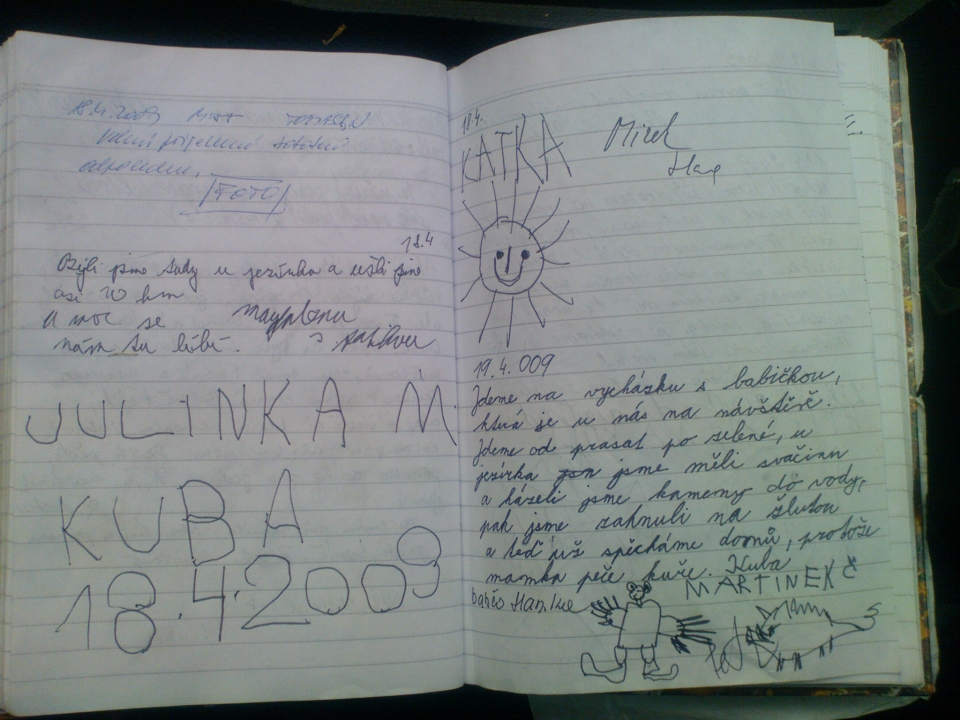 18.4.2009
Velmi příjemné
FOTO
18.4
Byli jsme tudy u jezírka a ušli jsme
asi 20 km
a moc se
nám tu líbí.
JULINKA M.
KUBA
18.4.2009
18.4.
KATKA
Mirek
19.4.009
Jdeme na vycházku s babičkou,
která je u nás na návštěvě.
Jdeme od prasat po zelené, u
jezírka jsme měli svačinu
a házeli jsme kameny do vody,
pak jsme zahnuli na žlutou
a teď už spěcháme domů, protože
mamka peče kuře. Kuba
MARTINEK Č